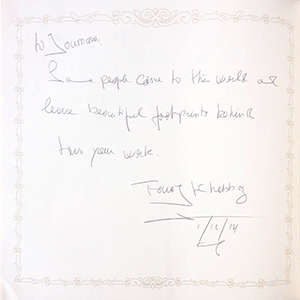 to Joumana,
Some people come to this world and
leave beautiful footprints behind
your work.
1/12/14